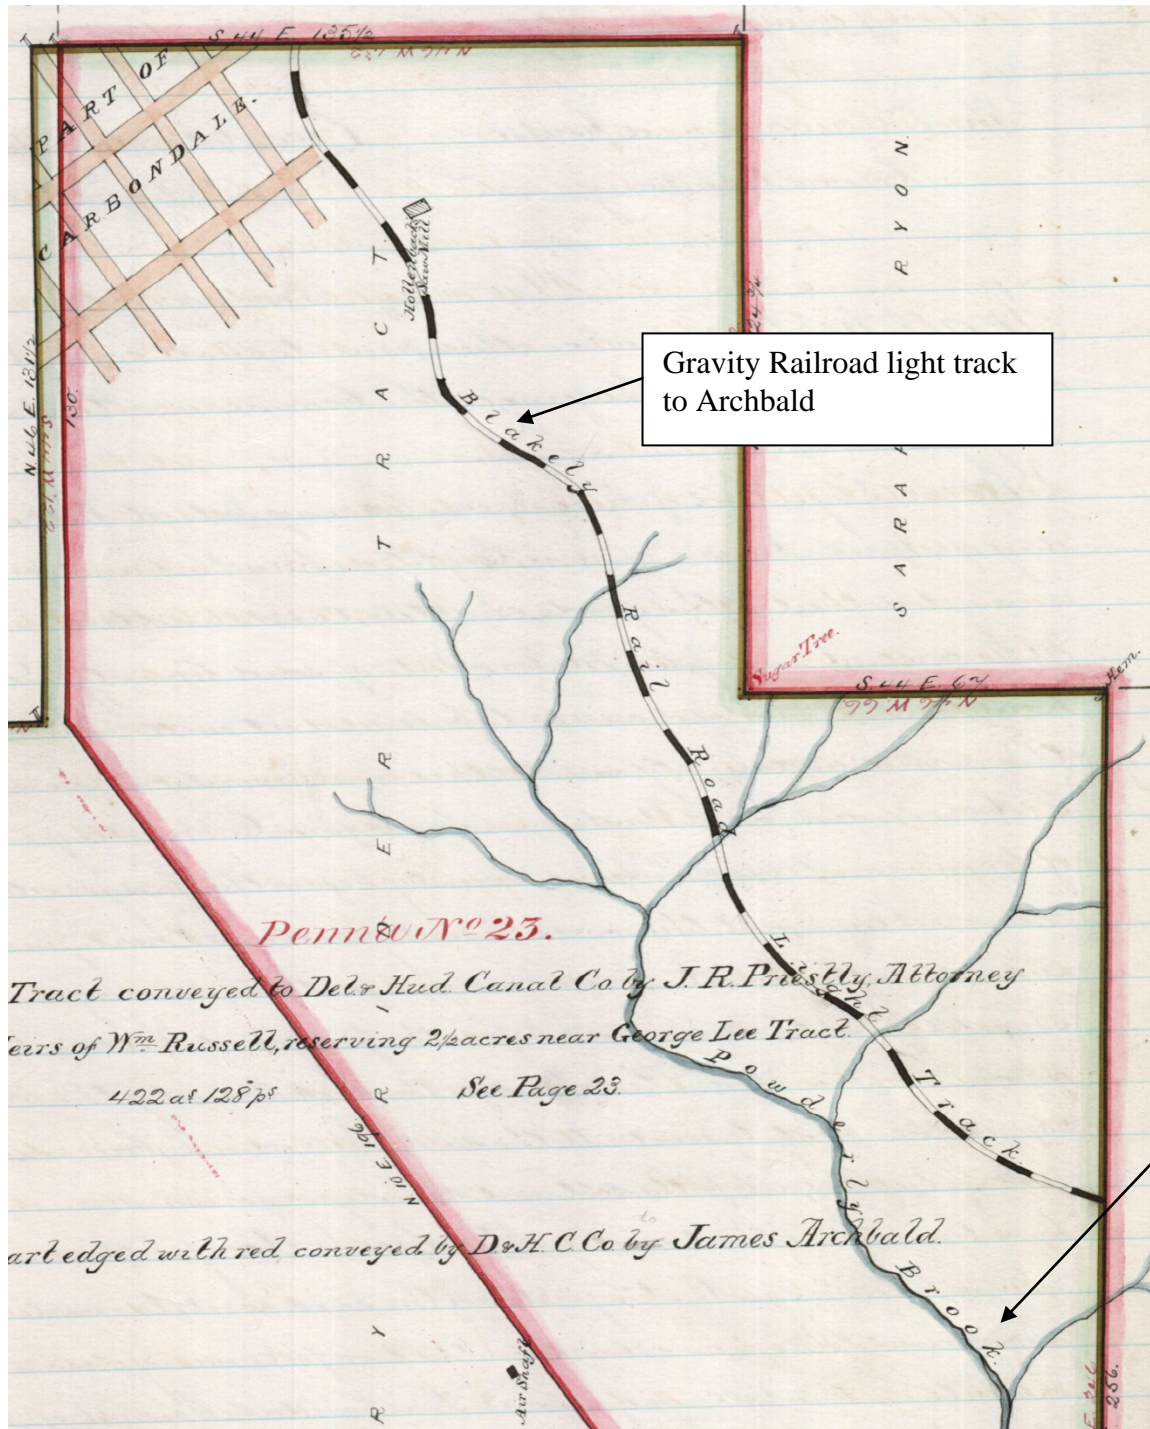 S 44 E. 135 1/2
N 46 W 132
PART OF
CARBONDALE.
Hollenback
Saw Mill
N 46 E. 181 1/2
130.
Gravity Railroad light track
to Archbald
Blakely Rail Road Light Track
TRACT.
SARAH RYON.
Sugar Tree.
Hem.
S. 44 E. 67
N 46 W. 66
Penn'a No 23.
Tract conveyed to Del. & Hud. Canal Co. by J. R. Priestly, Attorney
eirs of Wm Russell, reserving 2 1/2 acres near George Lee Tract.
422 as 128 ps
See Page 23.
Powderly Brook.
N 10 E. 196.
to
art edged with red conveyed by D & H. C. Co. by James Archbald.
Air Shaft
256.